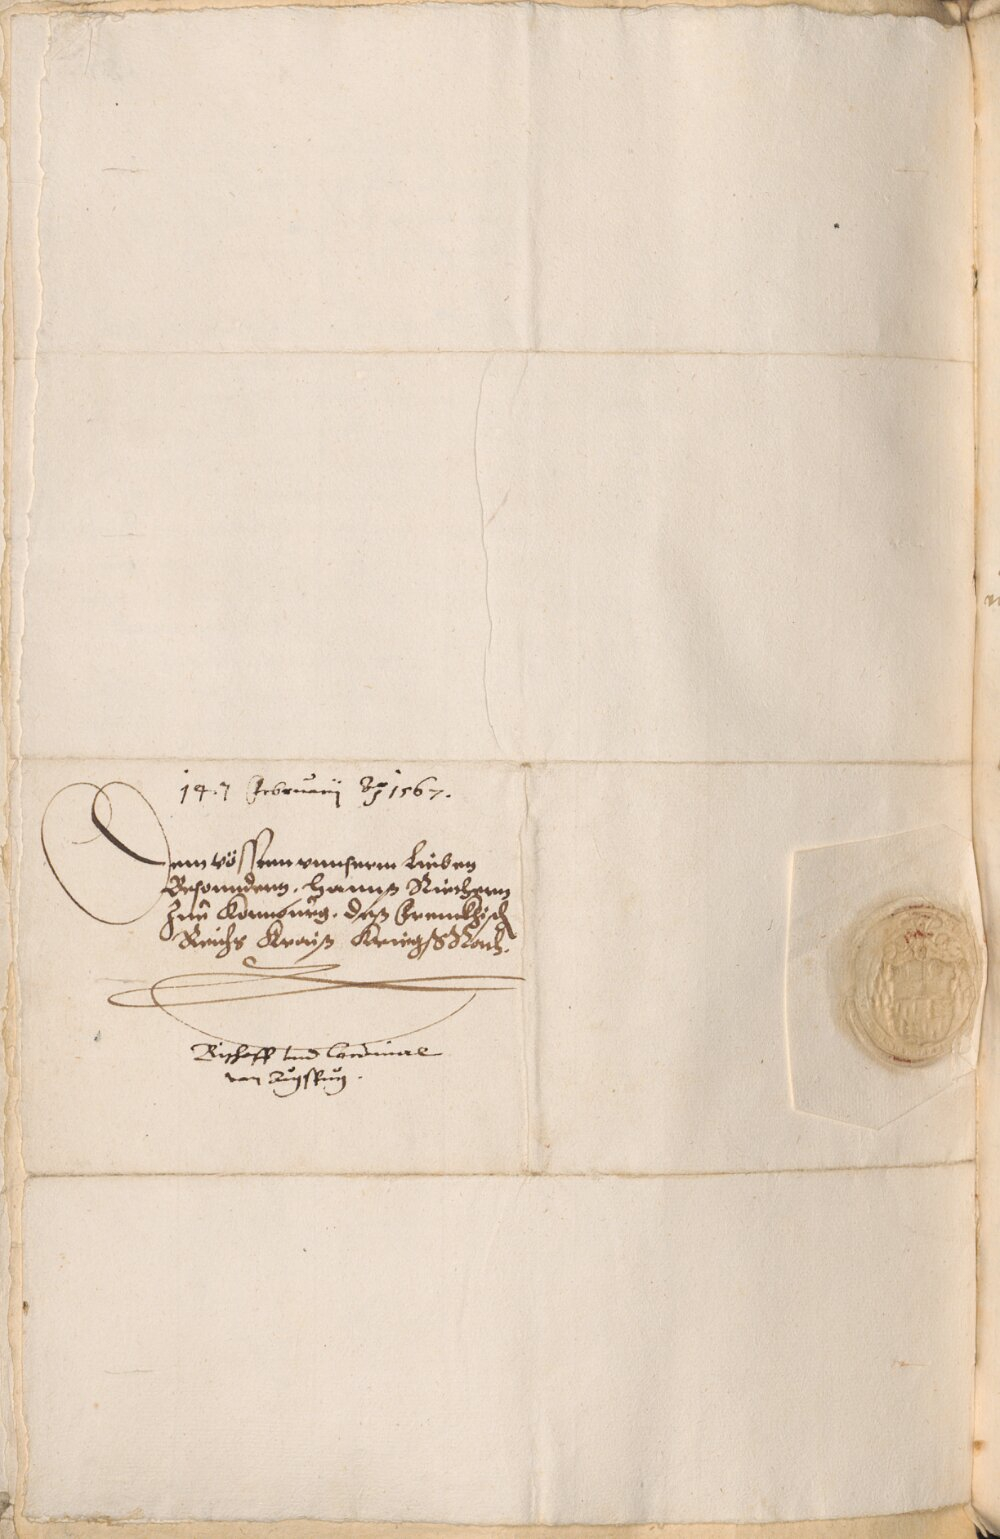 14.7 Februarij Ao 1567.
Dem vösten vnnserm Lieben
Besonndern. Hannß
Zue Kornburg. deß Frennkhisch
Reichs Kraiß KriegßRath.
Bischoff vnd Cardinal
von Augspurg.